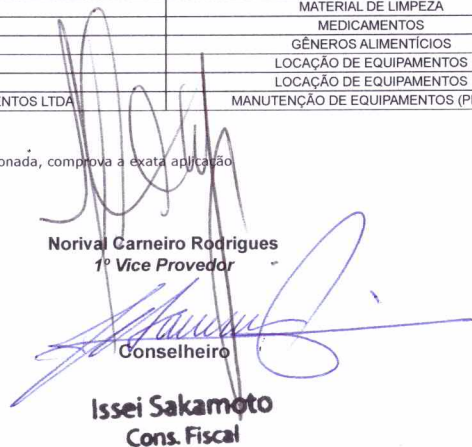 MATERIAL DE LIMPEZA
MEDICAMENTOS
GÊNEROS ALIMENTÍCIOS
LOCAÇÃO DE EQUIPAMENTOS
LOCAÇÃO DE EQUIPAMENTOS
ENTOS LTDA MANUTENÇÃO DE EQUIPAMENTOS (P
onada, comprova a exata aplicação
Norival Carneiro Rodrigues
1º Vice Provedor
Conselheiro
Issei Sakamoto
Cons. Fiscal